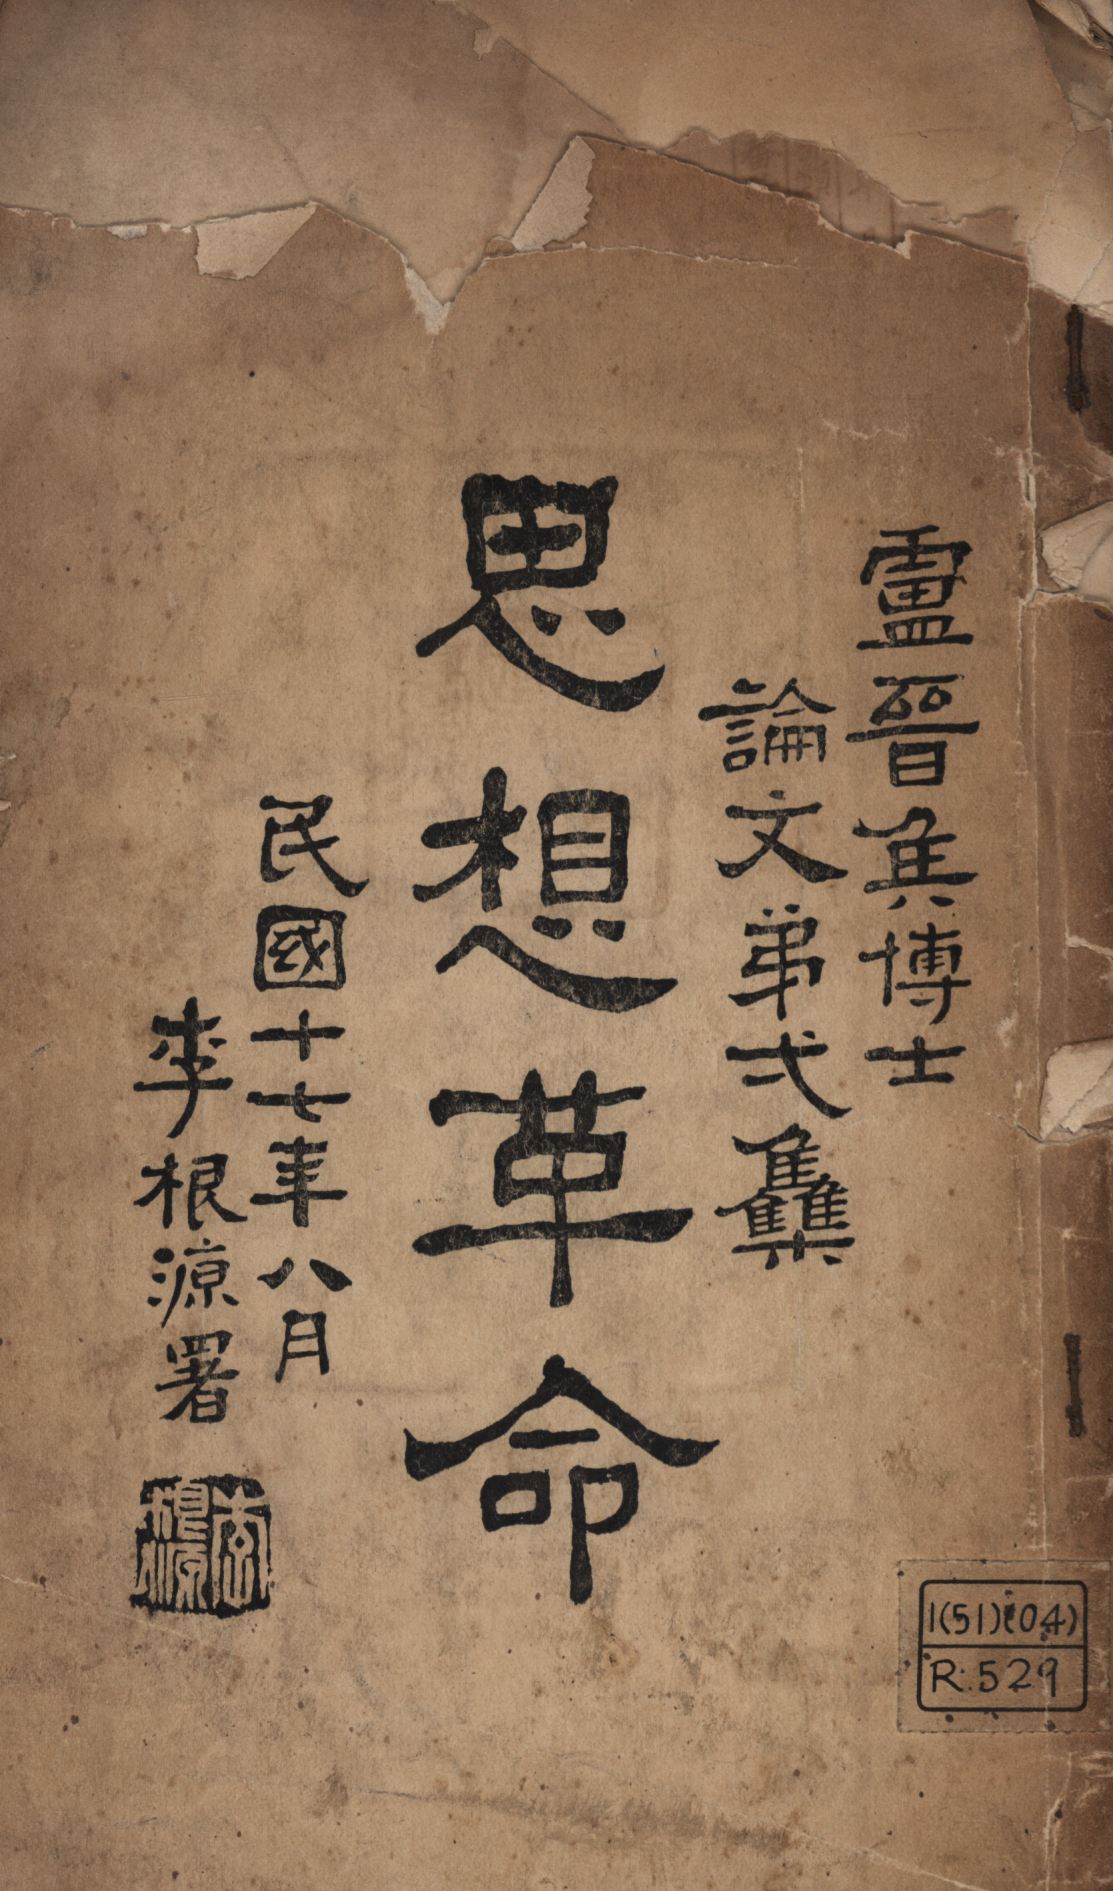 盧晉集博士
論文弟弍雧
思想革命
民國十七年八月
李根源署
李根源
1(51)(04)
R.529